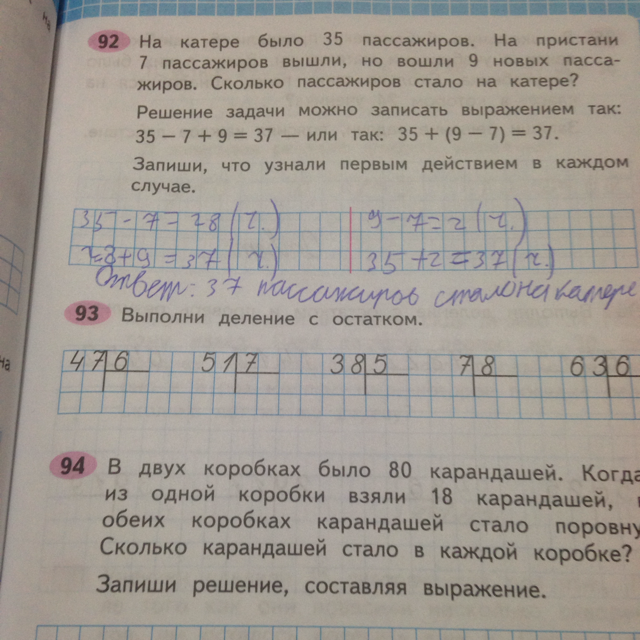 на
92 На катере было 35 пассажиров. На пристани
7 пассажиров вышли, но вошли 9 новых пасса-
жиров. Сколько пассажиров стало на катере?
Решение задачи можно записать выражением так:
35 − 7 + 9 = 37 — или так: 35 + (9 − 7) = 37.
Запиши, что узнали первым действием в каждом
случае.
35-7=28(ч.) 9-7=2(ч.)
28+9=37(ч.) 35+2=37(ч.)
Ответ: 37 пассажиров стало на катере
93 Выполни деление с остатком.
на
47 6 51 7 38 5 7 8 63 6
94 В двух коробках было 80 карандашей. Когда
из одной коробки взяли 18 карандашей,
обеих коробках карандашей стало поровну
Сколько карандашей стало в каждой коробке?
Запиши решение, составляя выражение.